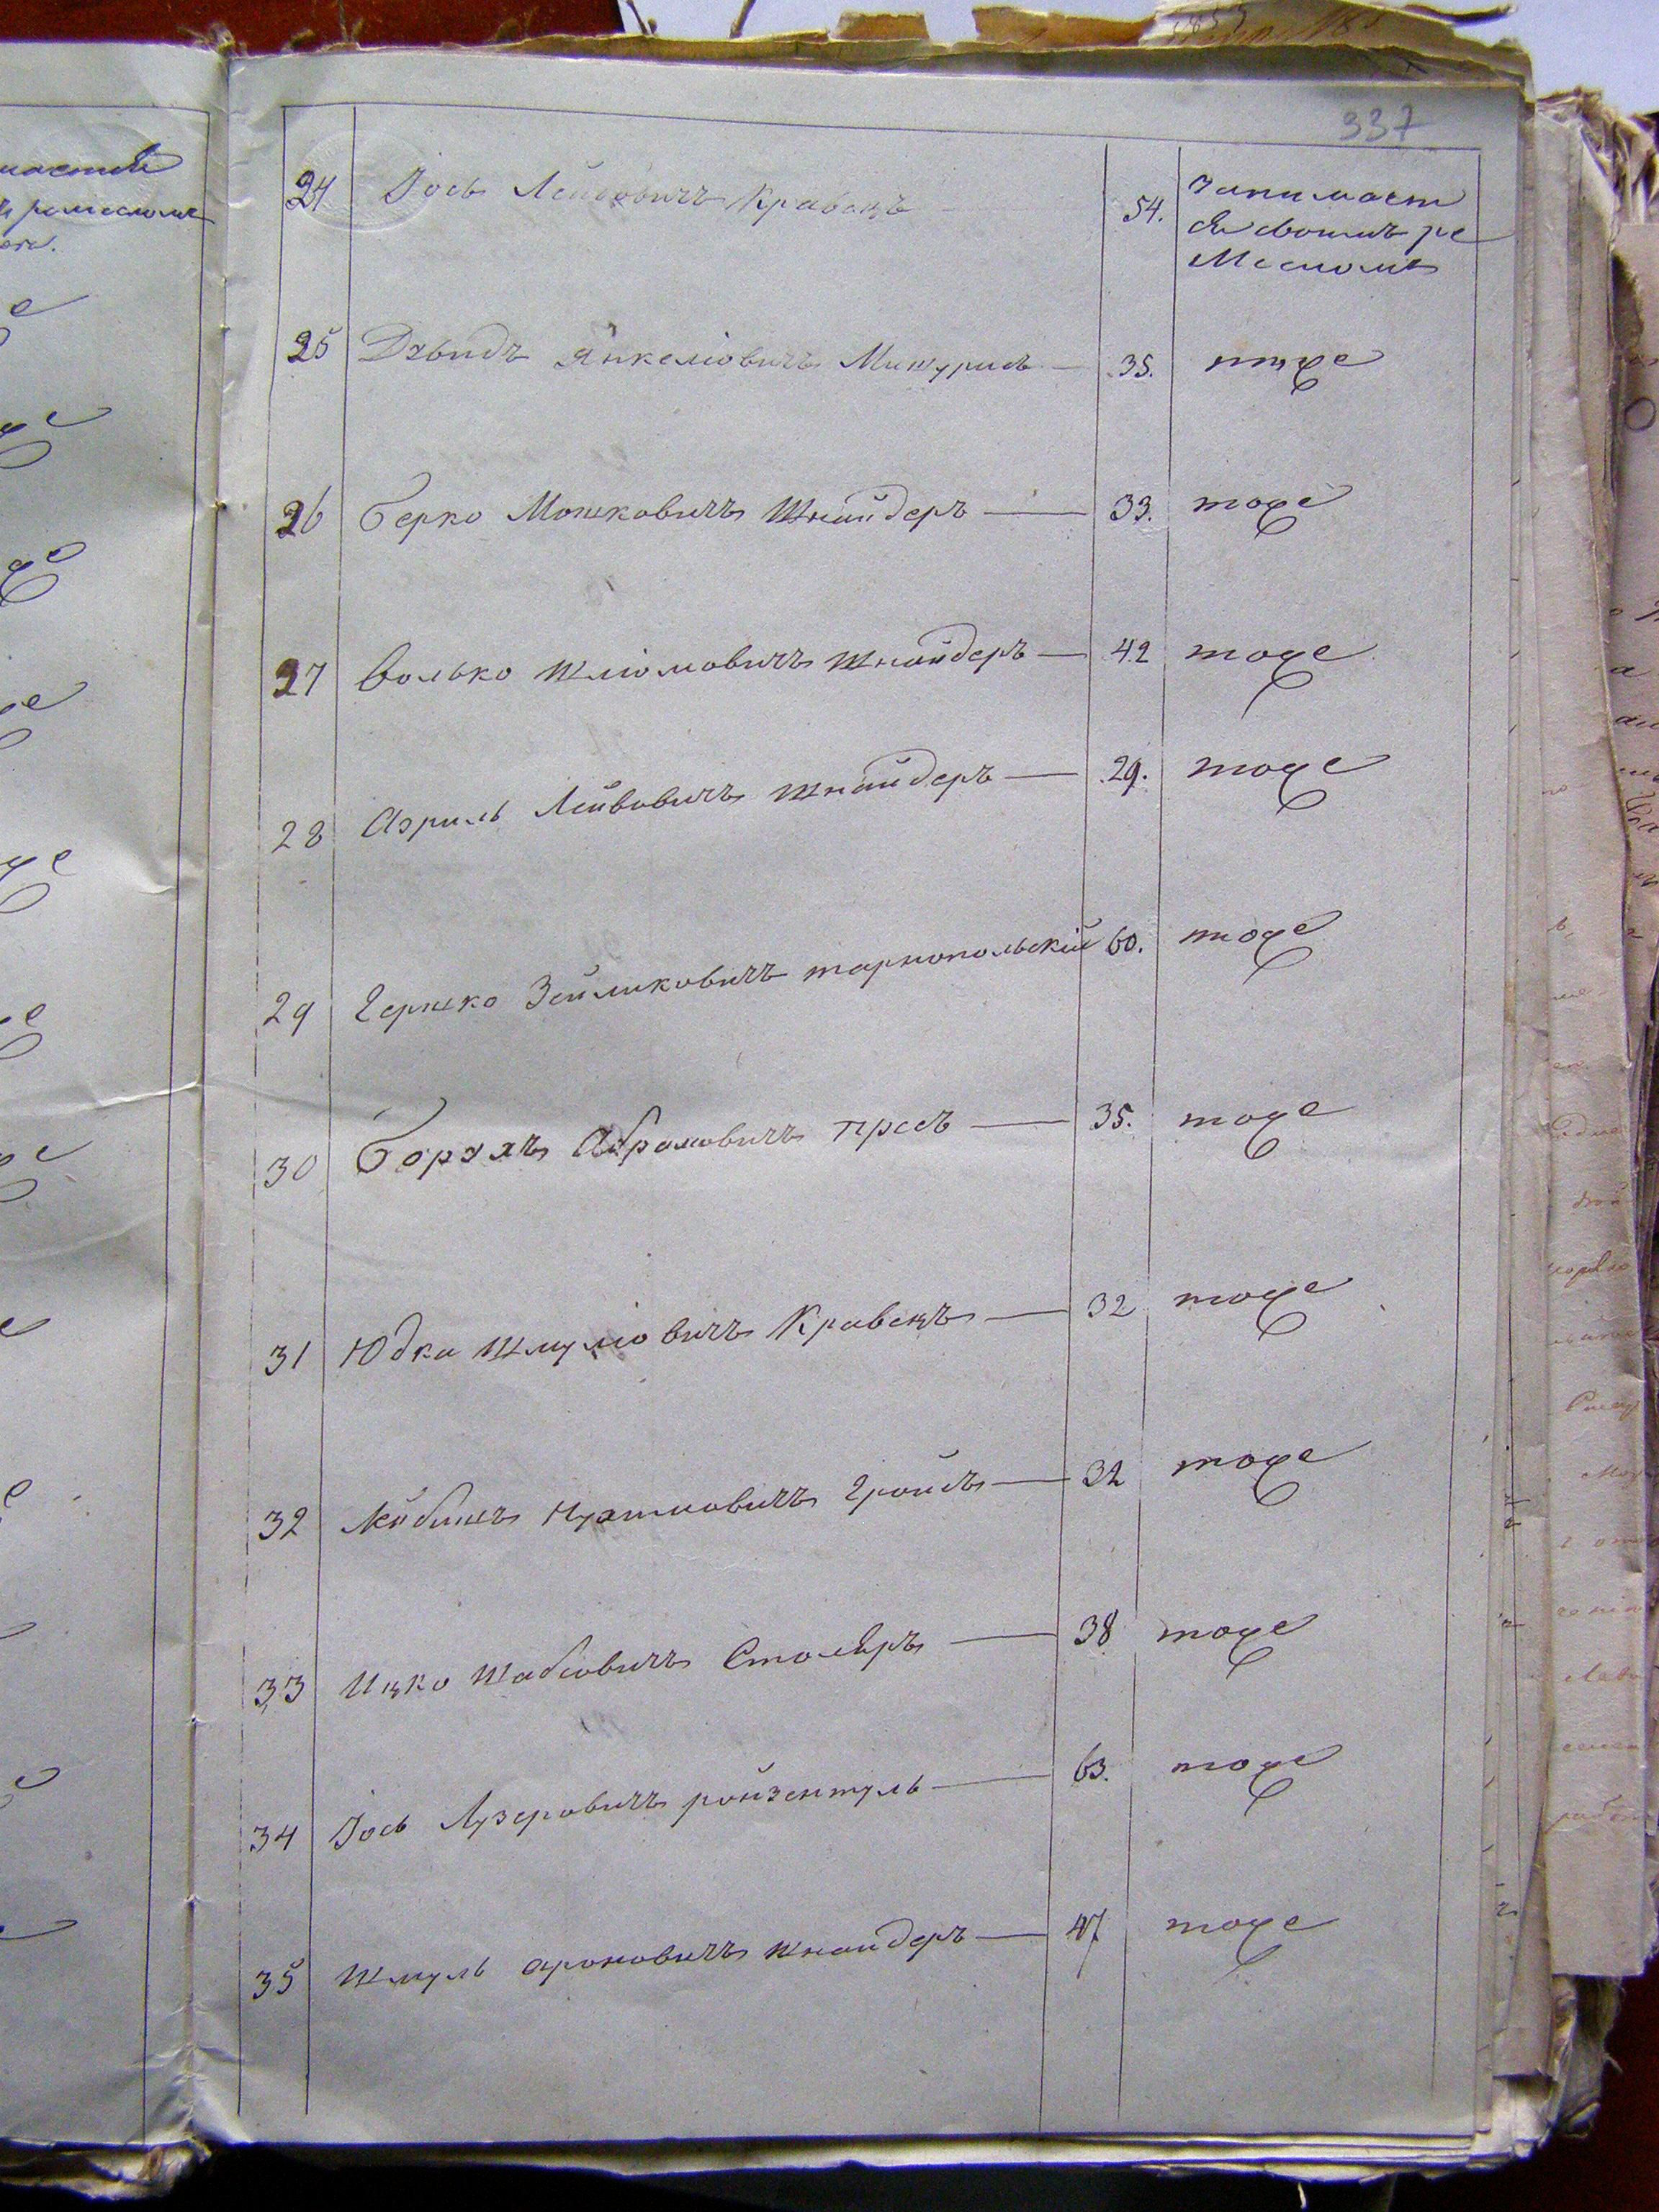 337
24 Іось Лейбовичъ Кравецъ 54. Занимает
ся своимъ ре
месломъ
25 Давидъ Янкеліовичъ 35. тоже
26 Берко Мошковичъ Шнайдеръ — 33. тоже
27 Волько Шліомовичъ Шнайдеръ — 42 тоже
28 Азриль Лейбовичъ Шнайдеръ — 29. тоже
29 Гершко Зейликовичъ тарнопольскій 60. тоже
30 Абрамовичъ — 35. тоже
31 Юдка Шмуліовичъ Кравецъ — 32 тоже
32 Лейбишъ Гройсъ — 32 тоже
33 Ицко Шабсовичъ Столяръ — 38 тоже
34 Іось Лузеровичъ ройзентуль — 63. тоже
35 Шмуль ароновичъ шнайдеръ — 47 тоже